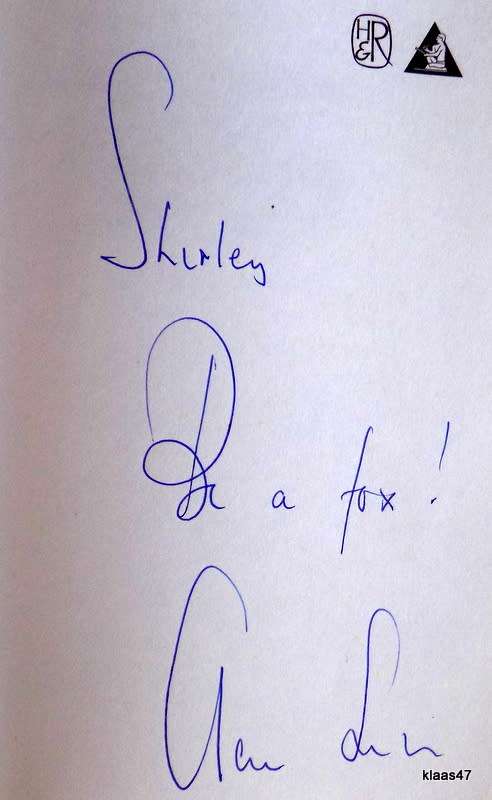 H
&R
Shirley
Be a fox!
klaas47